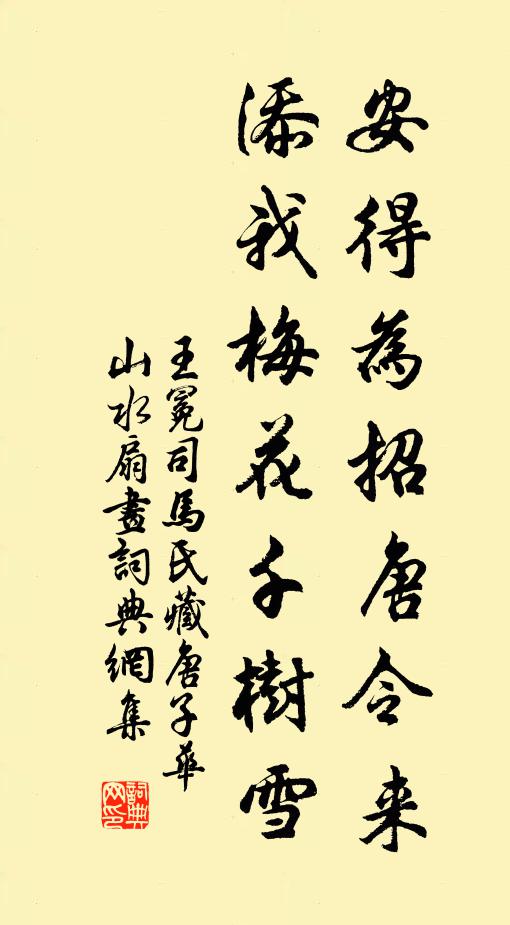 安得為招唐令来
添我梅花千樹雪
王冕司馬氏藏唐子華
山水扇畫詞典網集
詞典網印